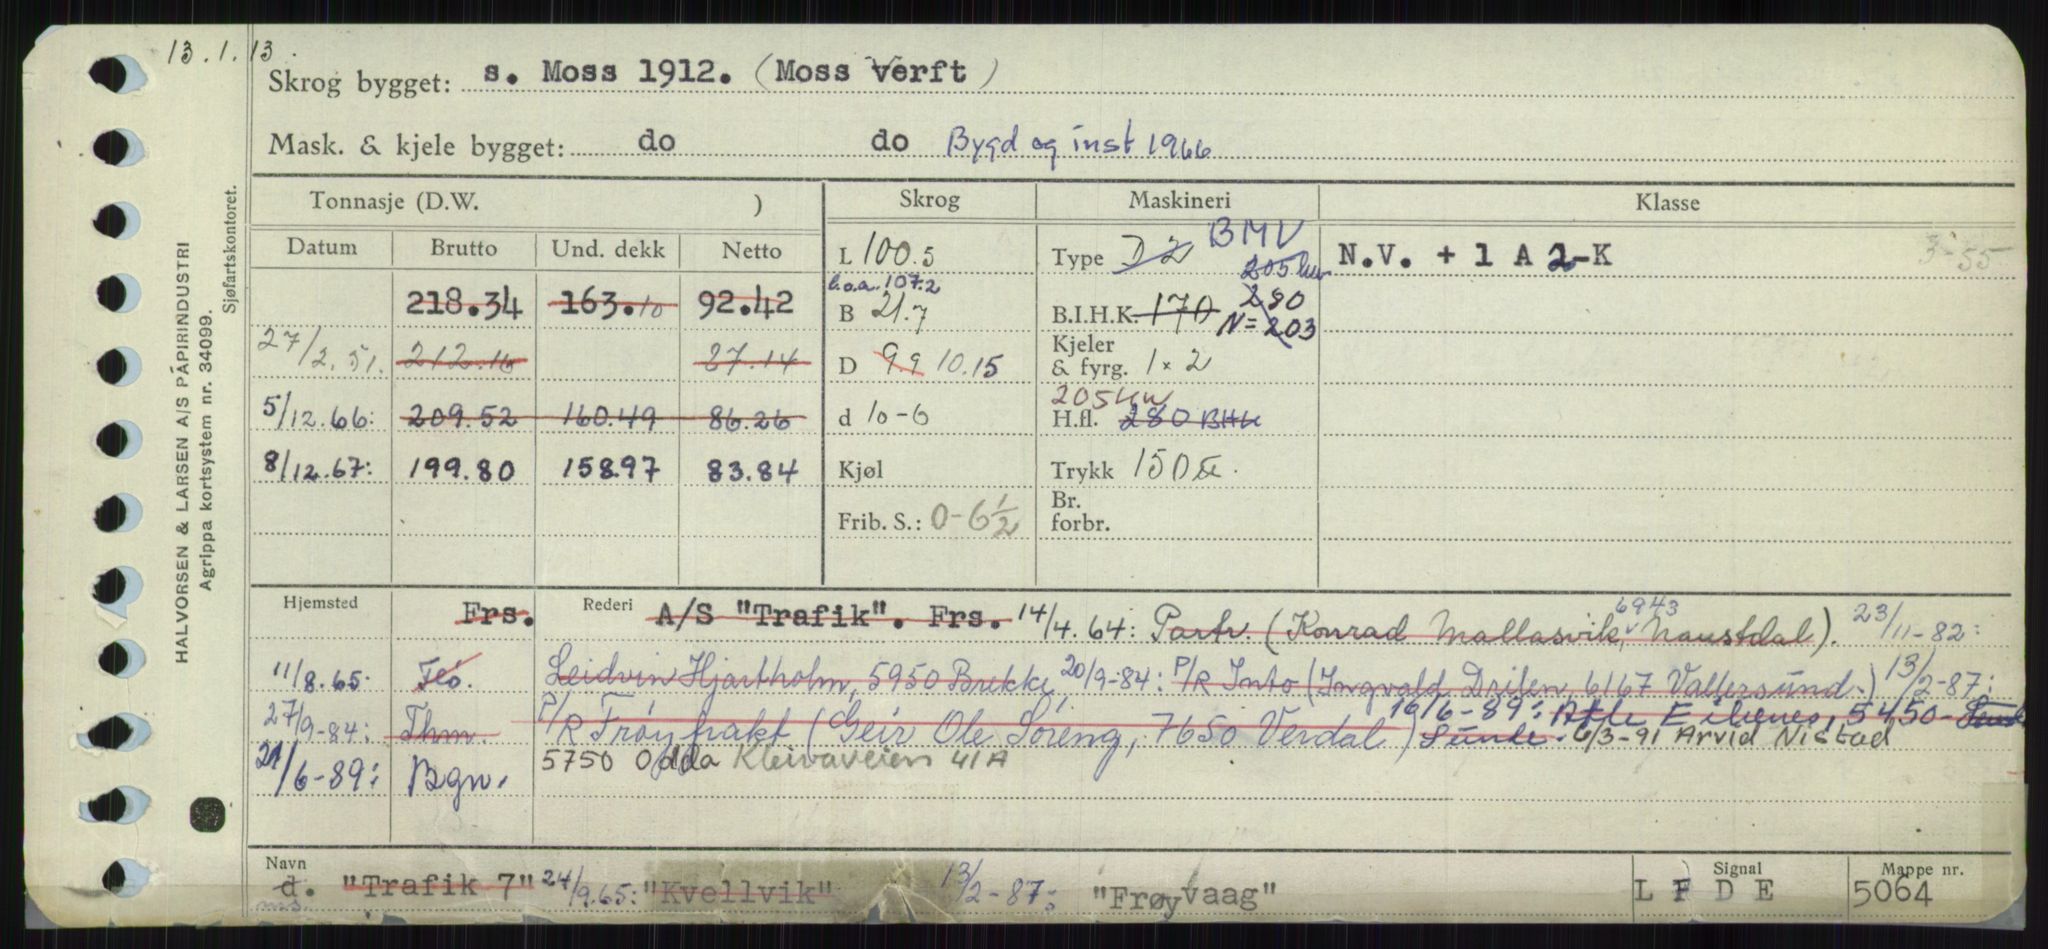 13.1.13.
Skrog bygget: s. Moss 1912. (Moss verft)
Mask. & kjele bygget: do do Bygd og inst 1966
Tonnasje (D.W. ) Skrog Maskineri Klasse
Datum Brutto Und. dekk Netto L 100.5 Type D 2 BMV N.V. + 1 A 2-K 3-55
l.o.a. 107.2 205 kw
218.34 163.10 92.42 B 21.7 B.I.H.K. 170 280 N=203
27/2.51. 212.16 87.14 D 9.9 10.15 Kjeler & fyrg. 1 x 2
205 kw
5/12.66: 209.52 160.49 86.26 d 10-6 H.fl. 280 BHK
8/12.67: 199.80 158.97 83.84 Kjøl Trykk 150
Frib. S.: 0-6½ Br. forbr.
Hjemsted Frs. Rederi A/S "Trafik". Frs. 14/4.64: Partr. (Konrad Mallasvik, 6943 Naustdal). 23/11-82:
11/8.65: Flö. Leidvin Hjartholm, 5950 Brekke, 20/9-84: P/R Into (Ingvald Drilen, 6167 Vallersund.) 13/2-87:
27/9-84: Thm. P/R Frøyfrakt (Geir Ole Soreng, 7650 Verdal) 16/6-89: Atle Eibenes, 5450 Sunde. 6/3-91 Arvid Nistad
21/6-89: Bgn. 5750 Odda Kleivaveien 41A
Navn d. ms. "Trafik 7" 24/9.65: "Kvellvik" 13/2-87: "Frøyvaag" Signal L F D E Mappe nr. 5064
HALVORSEN & LARSEN A/S PAPIRINDUSTRI
Agrippa kortsystem nr. 34099.
Sjøfartskontoret.